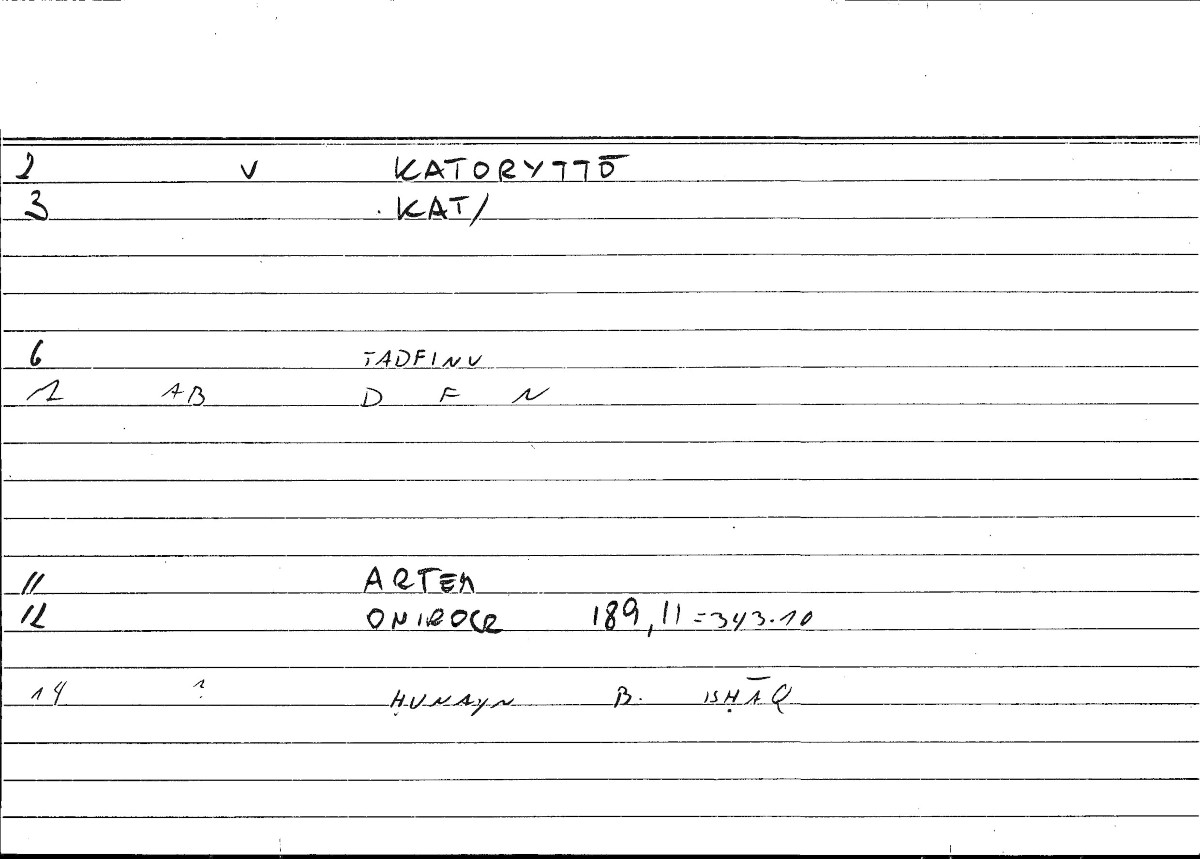 2 V KATORYTTŌ
3 KAT/
6 TADFINU
1 AB D F N
11 ARTEM
12 ONIROCR 189,11=343.10
14 ? ḤUNAYN B. ISḤĀQ